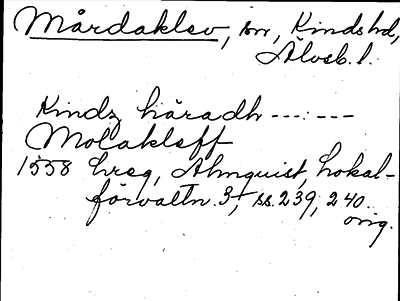 Mårdaklev, sn, Kinds hd,
Älvsb. l.
Kindz häradh ---:---
Molakleff
1558 hreg, Almquist, Lokal-
förvaltn. 3, ss. 239, 240.
orig.